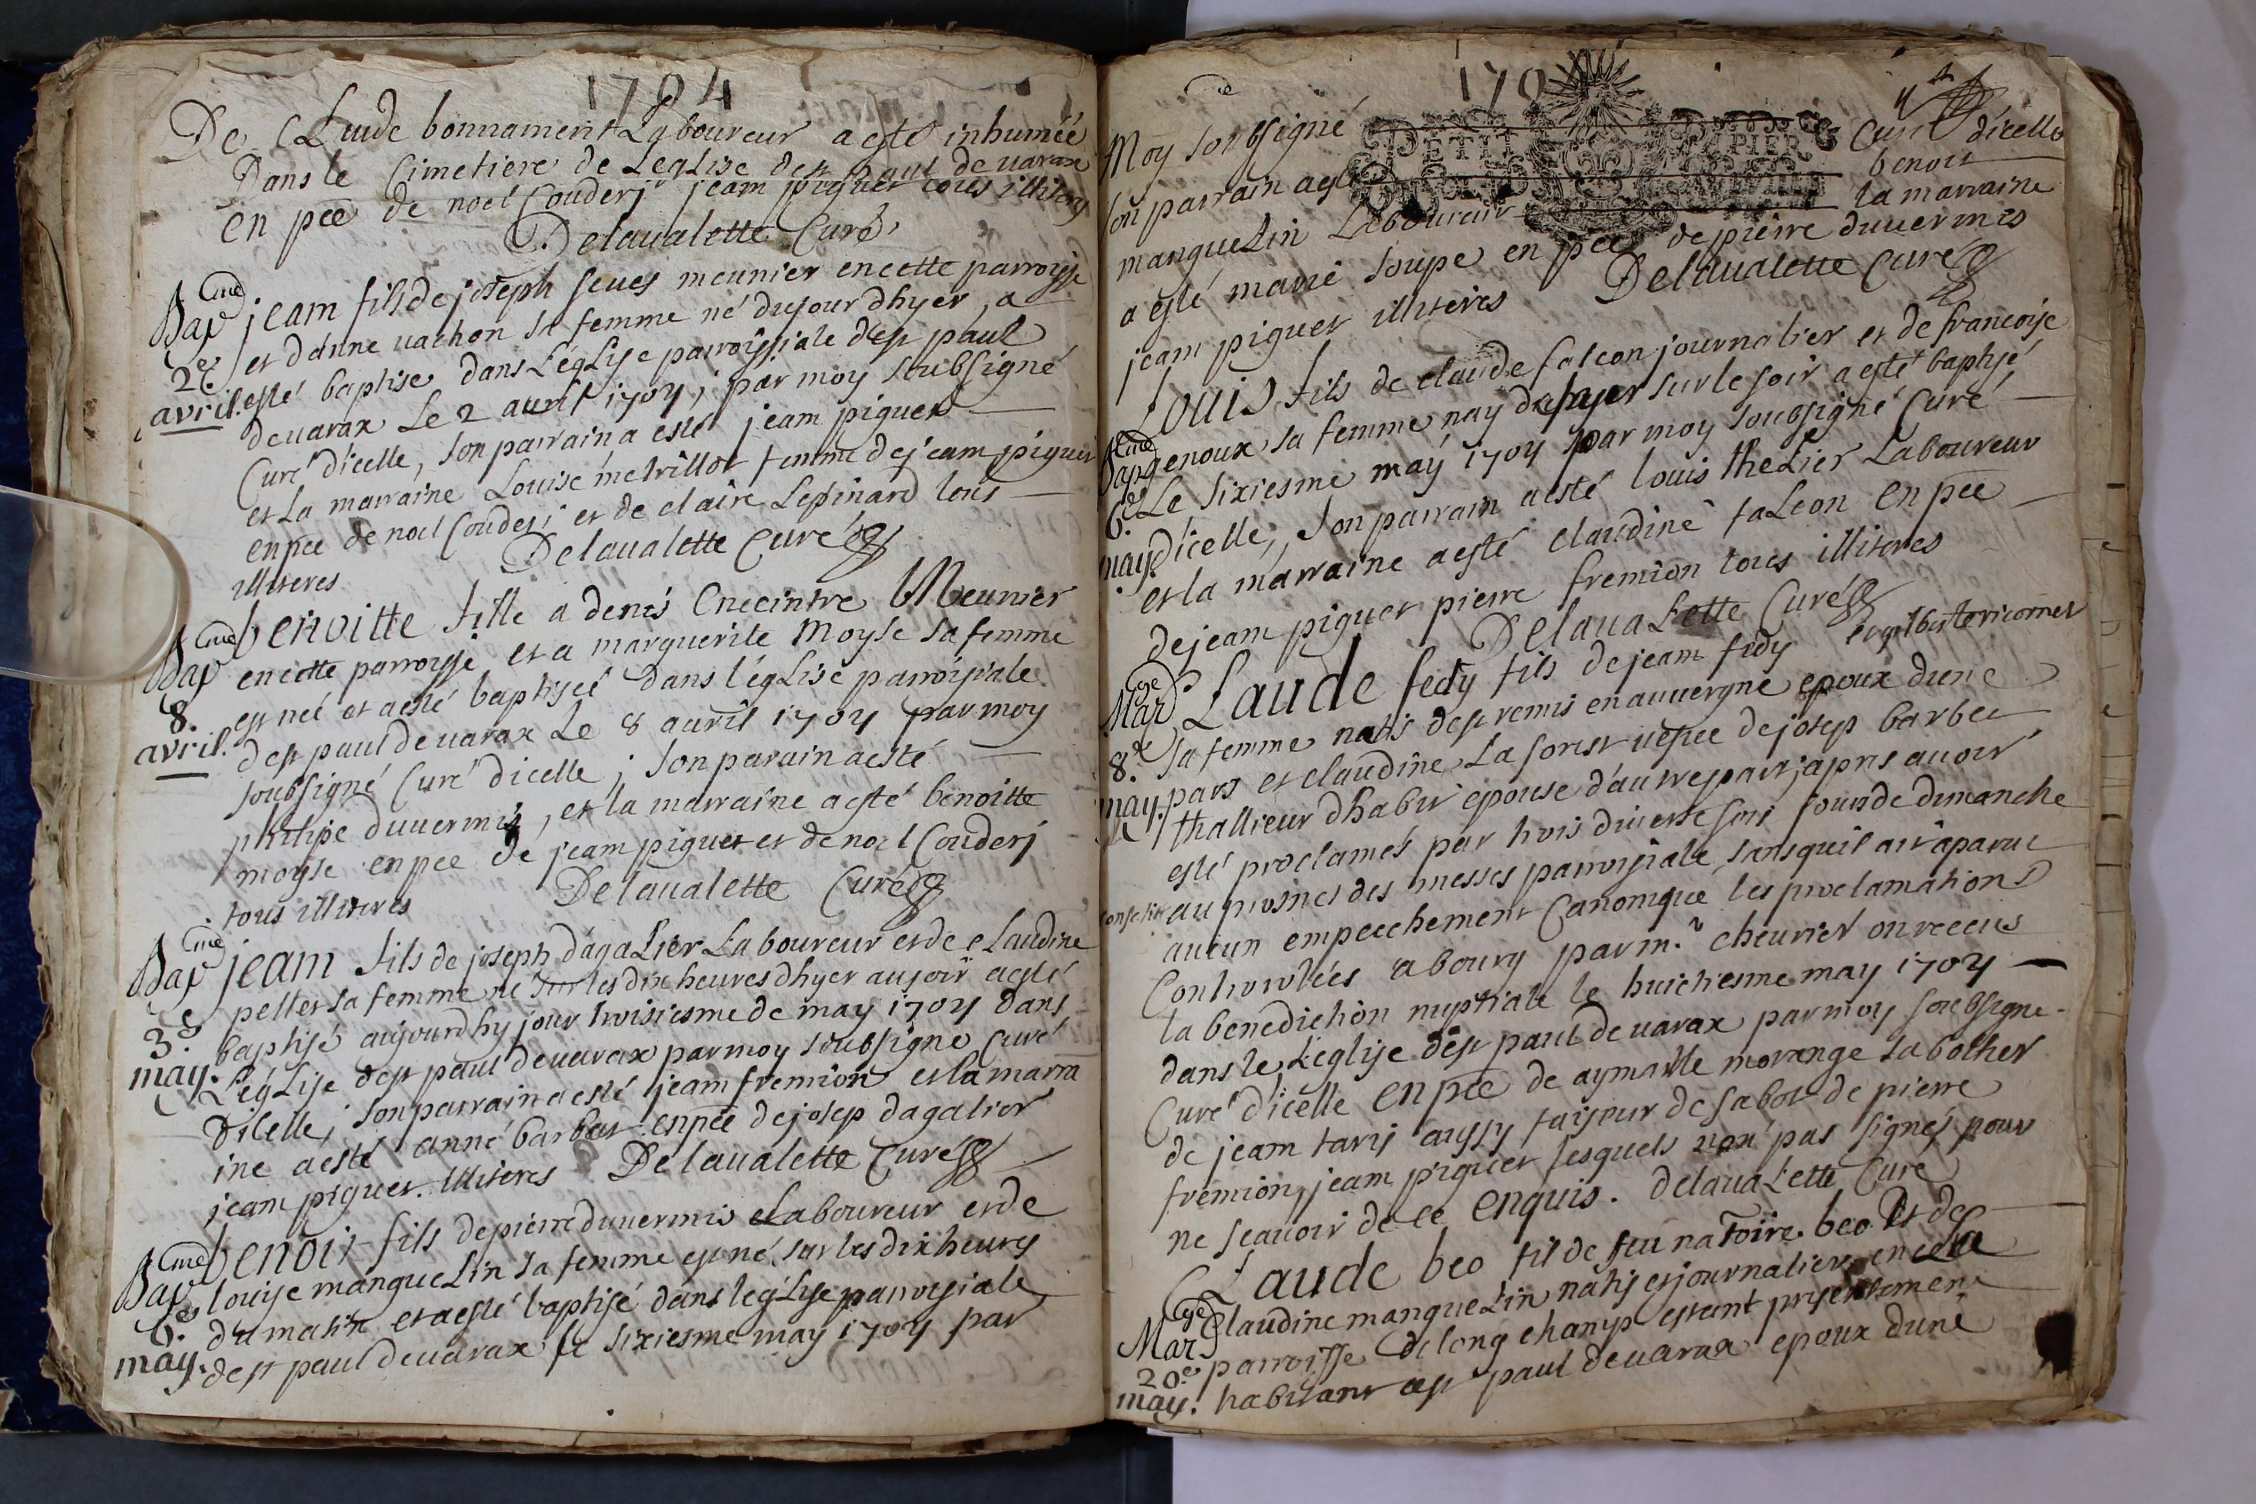 1704
De Claude bonnament Laboureur a esté inhumeé
Dans le Cimetiere de LegLise de st paul de uarax
en pce de noel Couderj jeam piguet tous illiteres
Delaualette Curé
Bap cme jeam fils de joseph seues meunier en cette parroisse
et danne uachon sa femme né dujourdhyer, a
2e esté baptise dans LégLise parroissiale dest paul
avril. deuarax Le 2 auril 1704, par moy soubsigné
Curé dicelle, son parrain a esté jeam piguet
et La marraine Louise metrillot femme dejeam piguet
en pce de noel Couderj et de claire Lepinard tous
illiteres Delaualette Curé
Bap cme benoitte fille a denis Enceintre Meunier
en cette parroisse et a marguerite Moyse sa femme
8. est neé et a esté baptiseé dans l'égLise parroissiale
avril. dest paul de uarax Le 8 auril 1704 par moy
soubsigné Curé dicelle ; son parain a esté
philipe duuermis, et la marraine a esté benoitte
moyse en pce de jeam piguet et de noel Couderj
tous illiteres Delaualette Curé
Bap cme jeam fils de joseph dagaLier Laboureur et de cLaudine
pellet sa femme né sur les dix heures dhyer au soir a esté
3e baptisé aujourdhy jour troisiesme de may 1704 dans
may. L'égLise dest paul deuarax par moy soubsigné Curé
Dicelle, son parrain a esté jeam fremion et la marra
ine a esté anne barbet en pce de josep dagalier
jeam piguet. illiteres Delaualette Curé
Bap cme benoit fils de pierre duuermis Laboureur et de
louise mangueLin sa femme est né sur les dix heures
6e du matin et a esté baptisé dans l'égLise parroissiale
may. dest paul deuarax le sixiesme may 1704 par
170
PETIT PAPIER
Moy soubsigné Curé dicelle
son parrain a esté benoit
mangueLin Laboureur la marraine
a esté marie soupe en pce de pierre duuermis
jeam piguet illiteres Delaualette Curé
Louis fils de claude faLcon journalier et de francoise
Bap cme genoux sa femme nay dhyer sur le soir a esté baptisé
6e Le sixiesme may 1704 par moy soubsigné Curé
may. dicelle, son parrain a esté louis theLier Laboureur
et la marraine a esté claudine faLcon en pce
de jeam piguet pierre fremion tous illiteres
DelauaLette Curé
Mar ge CLaude fedy fils de jeam fidy
8e sa femme natif dest remis en auuergne epoux dune
may. part et claudine La forest uefue de josep barbet
thallieur dhabit epouse d'autre part, apres auoir
esté proclamés par trois diuerse fois jours de dimanche
au prosnes des messes parroissiale, sans quil ait aparut
aucun empechement Canonique les proclamations
Controoleés a bourg par mr cheurier on receus
la benediction nuptiale le huictiesme may 1704
dans le L'eglise dest paul de uarax par moy soubsigné
Curé dicelle en pce de aymable morange sabottier
de jeam tarij aussy faiseur de sabot de pierre
fremion, jeam piguet lesquels n'on pas signés pour
ne sçauoir de ce enquis. delauaLette Curé
Mar ge CLaude beo fil de feu natoire beo et de
claudine mangueLin natif et journalier en cette
20e parroisse de longchamp estant presentement
may. habitant dest paul deuarax epoux dune